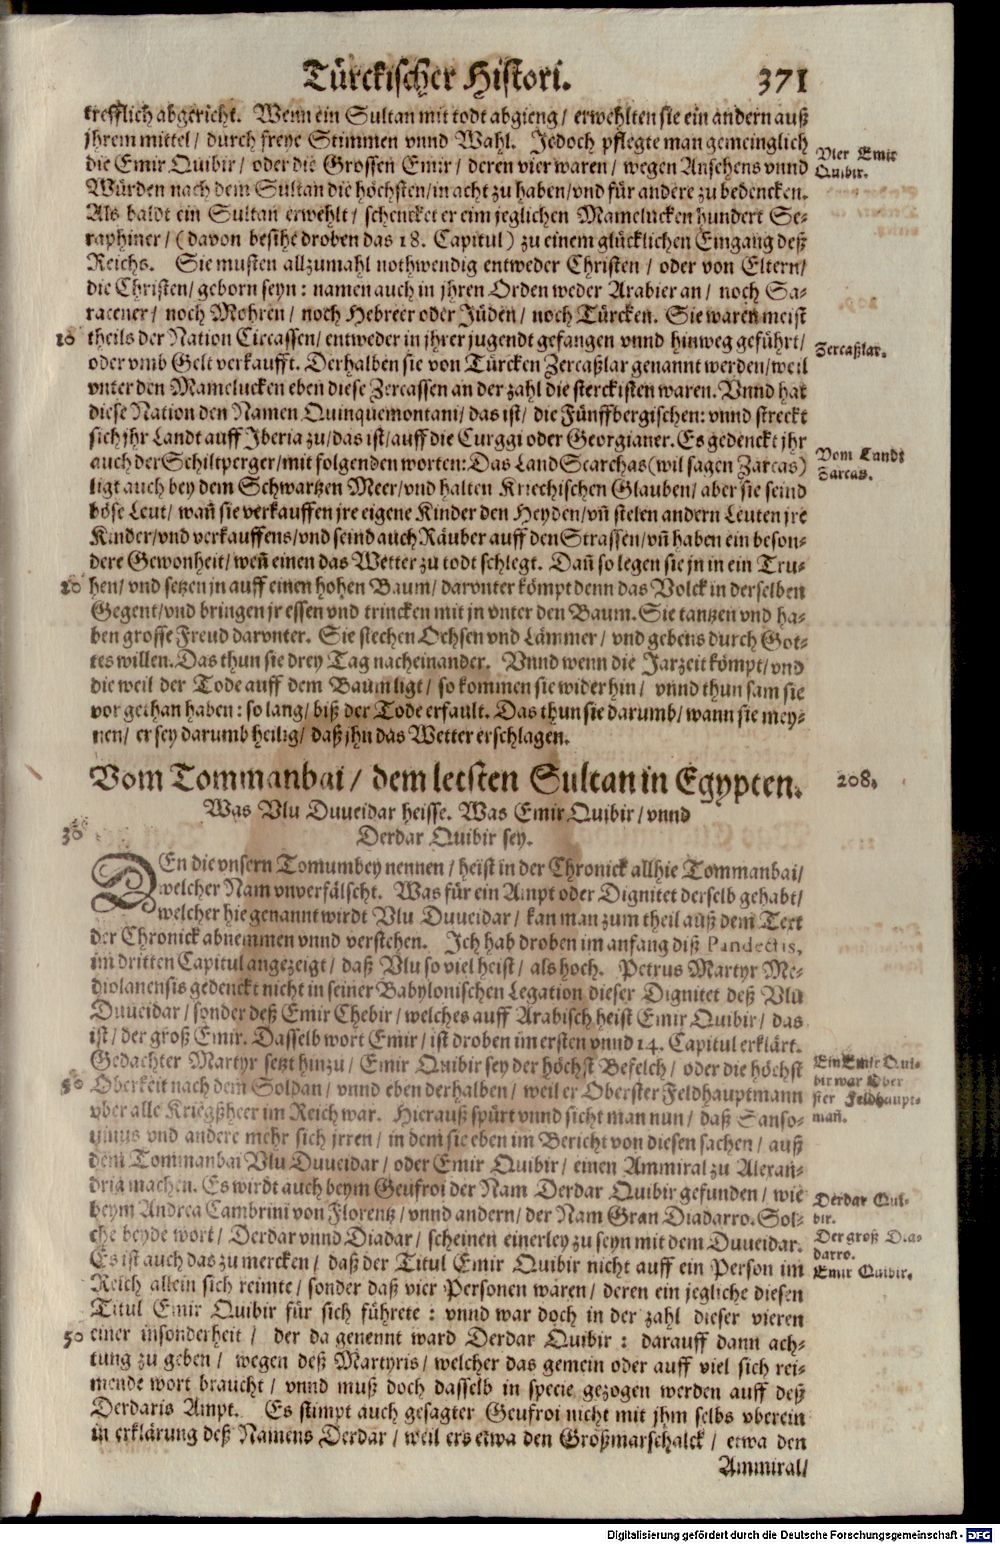 Türckischer Histori. 371
trefflich abgericht. Wenn ein Sultan mit todt abgieng / erwehlten sie ein andern auß
jhrem mittel / durch freye Stimmen vnnd Wahl. Jedoch pflegte man gemeinglich
die Emir Quibir / oder die Grossen Emir / deren vier waren / wegen Ansehens vnnd
Würden nach dem Sultan die höchsten / in acht zu haben / vnd für andere zu bedencken.
Vier Emir
Quibir.
Als baldt ein Sultan erwehlt / schencket er eim jeglichen Mamelucken hundert Se-
raphiner / (davon besihe droben das 18. Capitul) zu einem glücklichen Eingang deß
Reichs. Sie musten allzumahl nothwendig entweder Christen / oder von Eltern /
die Christen / geborn seyn : namen auch in jhren Orden weder Arabier an / noch Sa-
racener / noch Mohren / noch Hebreer oder Jüden / noch Türcken. Sie waren meist
10 theils der Nation Circassen / entweder in jhrer jugendt gefangen vnnd hinweg geführt /
oder vmb Gelt verkaufft. Derhalben sie von Türcken Zercaßlar genannt werden / weil
Zercaßlar.
vnter den Mamelucken eben diese Zercassen an der zahl die sterckisten waren. Vnnd hat
diese Nation den Namen Quinquemontani / das ist / die Fünffbergischen : vnnd streckt
sich jhr Landt auff Iberia zu / das ist / auff die Curggi oder Georgianer. Es gedenckt jhr
auch der Schiltperger / mit folgenden worten : Das Land Scarchas (wil sagen Zarcas)
Vom Lande
Zarcas.
ligt auch bey dem Schwartzen Meer / vnd halten Kriechischen Glauben / aber sie seind
böse Leut / wañ sie verkauffen jre eigene Kinder den Heyden / vñ stelen andern Leuten jre
Kinder / vnd verkauffens / vnd seind auch Räuber auff den Strassen / vñ haben ein beson-
dere Gewonheit / weñ einen das Wetter zu todt schlegt. Dañ so legen sie jn in ein Tru-
20 hen / vnd setzen jn auff einen hohen Baum / darvnter kömpt denn das Volck in derselben
Gegent / vnd bringen jr essen vnd trincken mit jn vnter den Baum. Sie tantzen vnd ha-
ben grosse Freud darvnter. Sie stechen Ochsen vnd Lämmer / vnd gebens durch Got-
tes willen. Das thun sie drey Tag nacheinander. Vnnd wenn die Jarzeit kömpt / vnd
die weil der Tode auff dem Baum ligt / so kommen sie wider hin / vnnd thun sam sie
vor gethan haben : so lang / biß der Tode erfault. Das thun sie darumb / wann sie mey-
nen / er sey darumb heilig / daß jhn das Wetter erschlagen.
Vom Tommanbai / dem letsten Sultan in Egypten. 208.
Was Vlu Duueidar heisse. Was Emir Quibir / vnnd
30 Derdar Quibir sey.
DEn die vnsern Tomumbey nennen / heist in der Chronick allhie Tommanbai /
welcher Nam vnverfälscht. Was für ein Ampt oder Dignitet derselb gehabt /
welcher hie genannt wirdt Vlu Duueidar / kan man zum theil auß dem Text
der Chronick abnemmen vnnd verstehen. Ich hab droben im anfang diß Pandectis,
im dritten Capitul angezeigt / daß Vlu so viel heist / als hoch. Petrus Martyr Me-
diolanensis gedenckt nicht in seiner Babylonischen Legation dieser Dignitet deß Vlu
Duueidar / sonder deß Emir Chebir / welches auff Arabisch heist Emir Quibir / das
ist / der groß Emir. Dasselb wort Emir / ist droben im ersten vnnd 14. Capitul erklärt.
Gedachter Martyr setzt hinzu / Emir Quibir sey der höchst Befelch / oder die höchst
Oberkeit nach dem Soldan / vnnd eben derhalben / weil er Oberster Feldhauptmann
vber alle Kriegßheer im Reich war. Hierauß spürt vnnd sicht man nun / daß Sanso-
Ein Emir Qui-
bir war Ober
ster Feldhaupt-
mañ.
uinus vnd andere mehr sich jrren / in dem sie eben im Bericht von diesen sachen / auß
dem Tommanbai Vlu Duueidar / oder Emir Quibir / einen Ammiral zu Alexan-
dria machen. Es wirdt auch beym Geufroi der Nam Derdar Quibir gefunden / wie
beym Andrea Cambrini von Florentz / vnnd andern / der Nam Gran Diadarro. Sol-
Derdar Qui-
bir.
che beyde wort / Derdar vnnd Diadar / scheinen einerley zu seyn mit dem Duueidar.
Der groß Dia-
darro.
Es ist auch das zu mercken / daß der Titul Emir Quibir nicht auff ein Person im
Emir Quibir.
Reich allein sich reimte / sonder daß vier Personen waren / deren ein jegliche diesen
Titul Emir Quibir für sich führete : vnnd war doch in der zahl dieser vieren
50 einer insonderheit / der da genennt ward Derdar Quibir : darauff dann ach-
tung zu geben / wegen deß Martyris / welcher das gemein oder auff viel sich rei-
mende wort braucht / vnnd muß doch dasselb in specie gezogen werden auff deß
Derdaris Ampt. Es stimpt auch gesagter Geufroi nicht mit jhm selbs vberein
in erklärung deß Namens Derdar / weil ers etwa den Großmarschalck / etwa den
Ammiral /
Digitalisierung gefördert durch die Deutsche Forschungsgemeinschaft - DFG